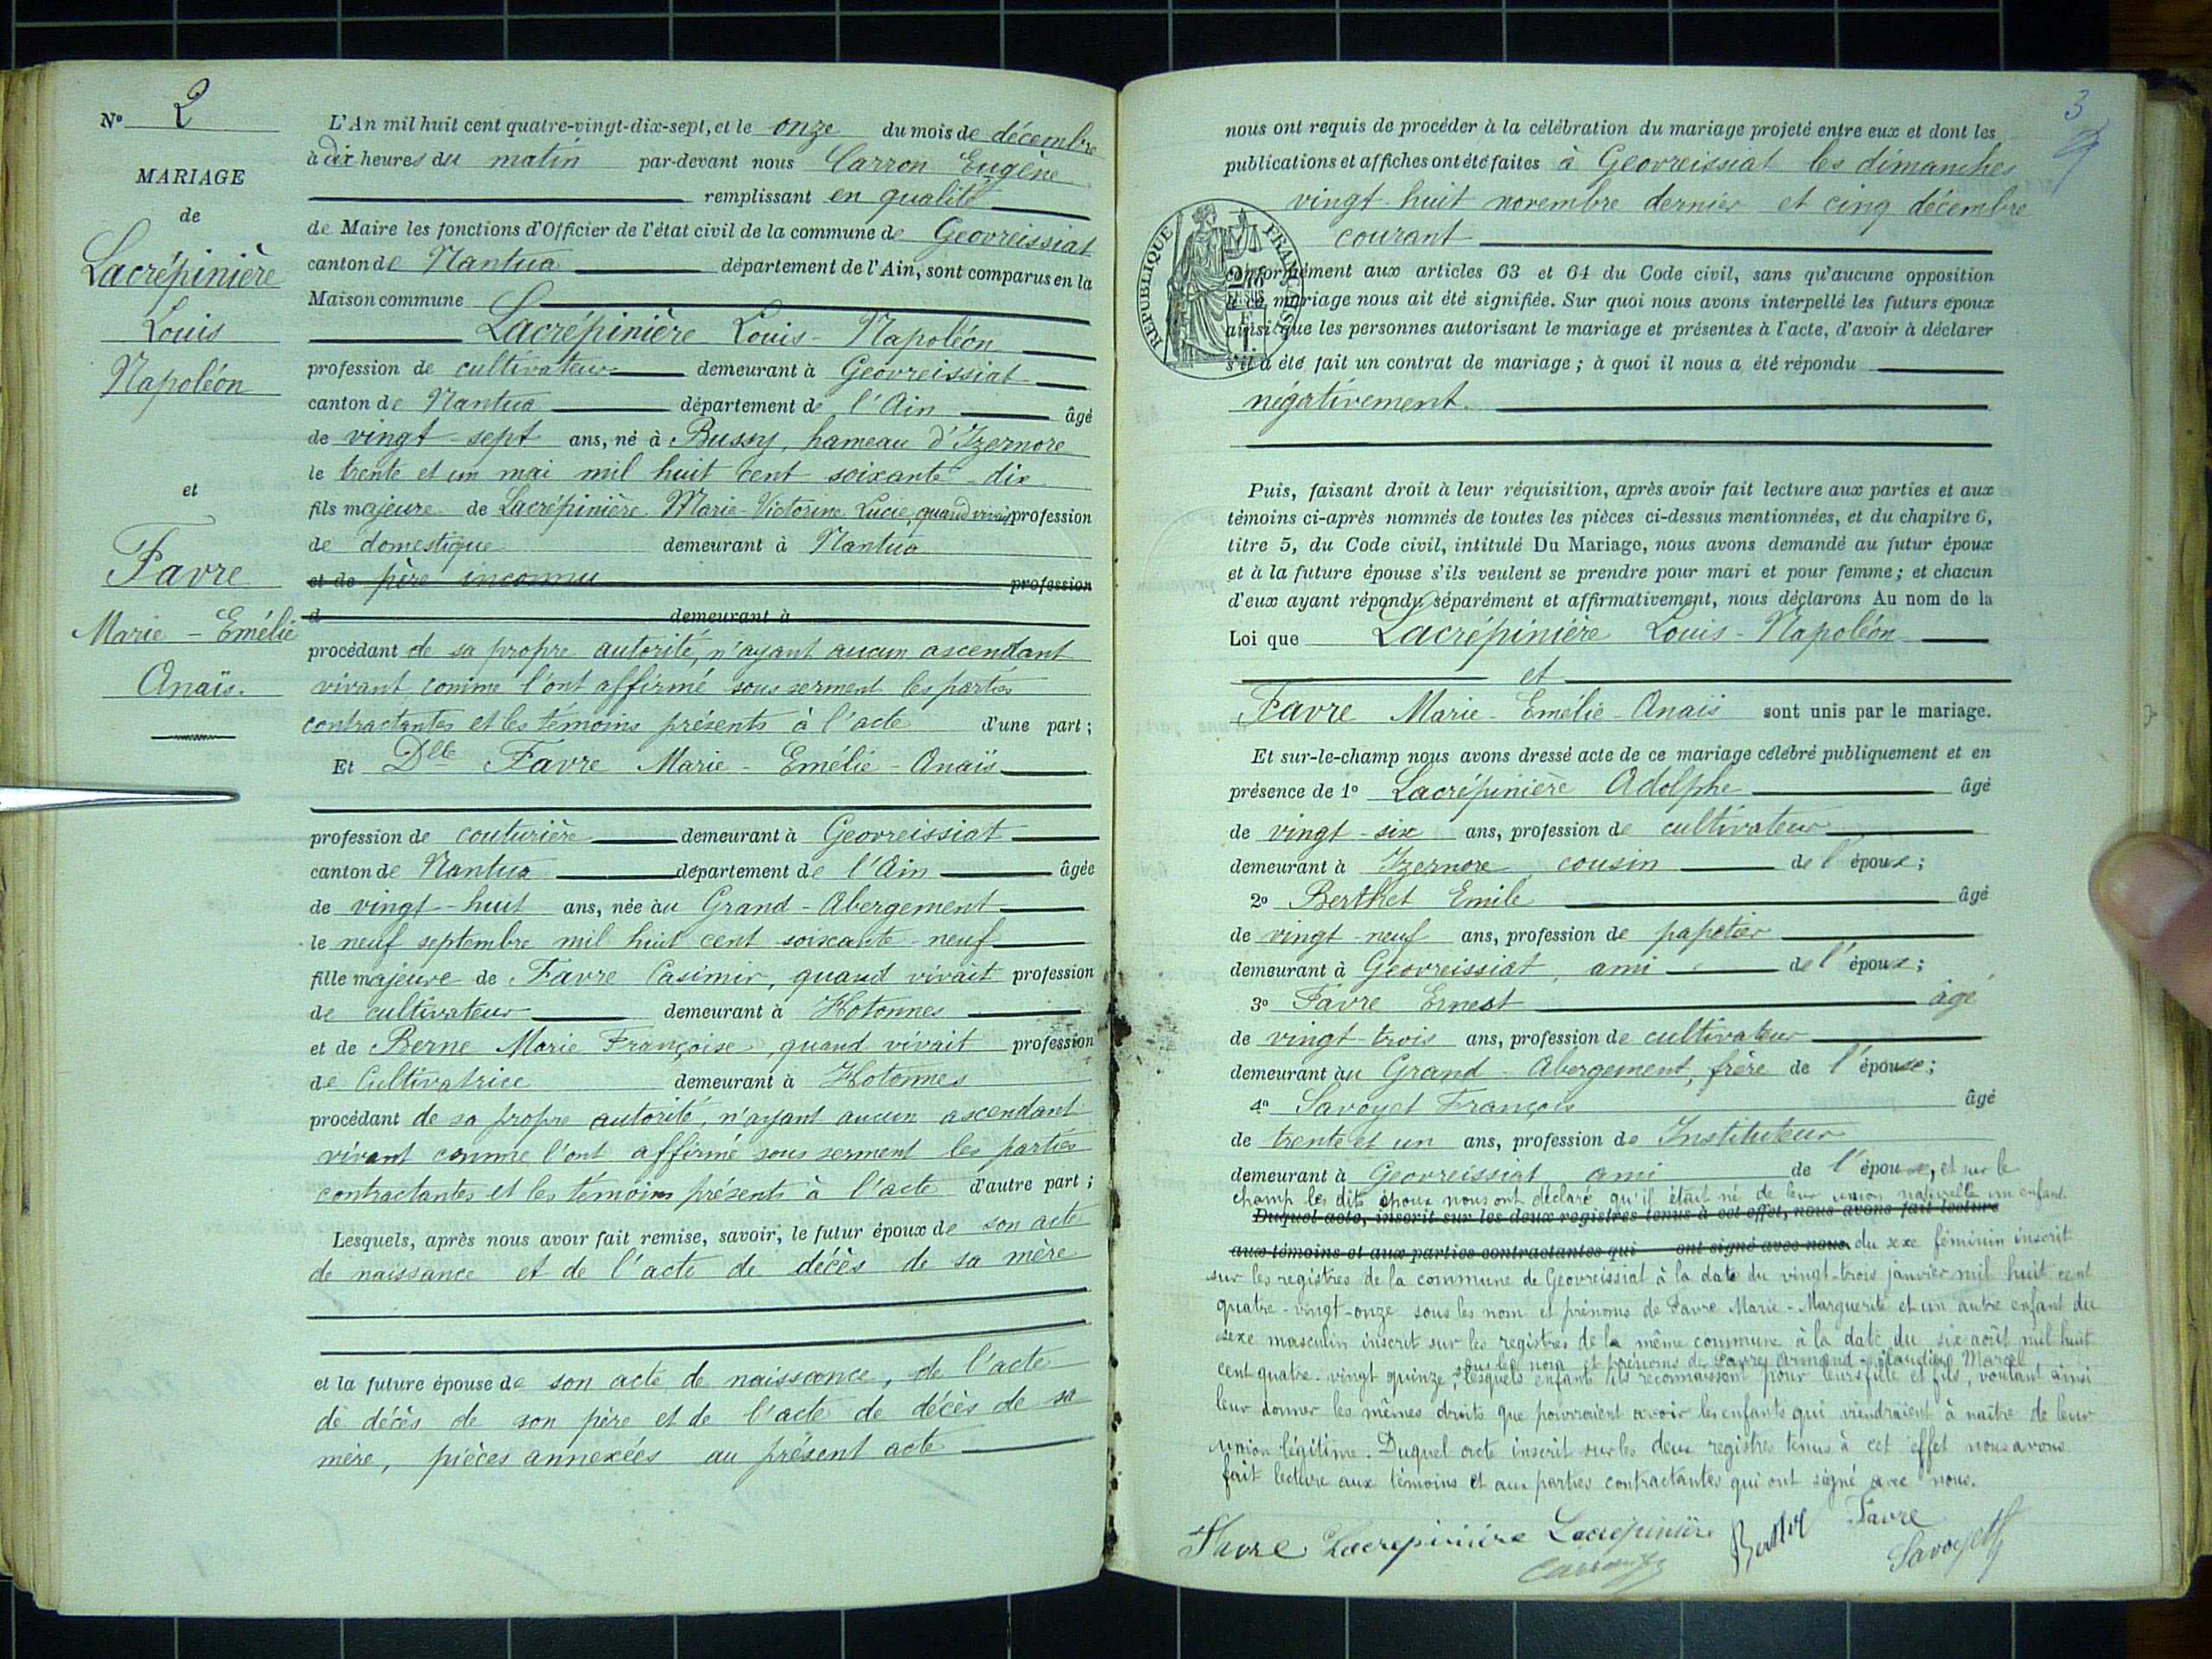 N° 2
MARIAGE
de
Lacrépinière
Louis
Napoléon
et
Favre
Marie - Emélie
Anaïs.
L'An mil huit cent quatre-vingt-dix-sept, et le onze du mois de décembre
à dix heures du matin par-devant nous Carron Eugène
remplissant en qualité
de Maire les fonctions d'Officier de l'état civil de la commune de Geovreissiat
canton de Nantua département de l'Ain, sont comparus en la
Maison commune
Lacrépinière Louis - Napoléon
profession de cultivateur demeurant à Geovreissiat
canton de Nantua département de l'Ain âgé
de vingt-sept ans, né à Bussy, hameau d'Izernore
le trente et un mai mil huit cent soixante-dix
fils majeure de Lacrépinière Marie-Victorine Lucie, quand vivait profession
de domestique demeurant à Nantua
et de père inconnu profession
d demeurant à
procédant de sa propre autorité, n'ayant aucun ascendant
vivant comme l'ont affirmé sous serment les parties
contractantes et les témoins présents à l'acte d'une part;
Et Dlle Favre Marie - Emélie - Anaïs
profession de couturière demeurant à Geovreissiat
canton de Nantua département de l'Ain âgée
de vingt-huit ans, née au Grand-Abergement
le neuf septembre mil huit cent soixante-neuf
fille majeure de Favre Casimir, quand vivait profession
de cultivateur demeurant à Hotonnes
et de Berne Marie Françoise, quand vivait profession
de Cultivatrice demeurant à Hotonnes
procédant de sa propre autorité, n'ayant aucun ascendant
vivant comme l'ont affirmé sous serment les parties
contractantes et les témoins présents à l'acte d'autre part;
Lesquels, après nous avoir fait remise, savoir, le futur époux de son acte
de naissance et de l'acte de décès de sa mère
et la future épouse de son acte de naissance, de l'acte
de décès de son père et de l'acte de décès de sa
mère, pièces annexées au présent acte
3
nous ont requis de procéder à la célébration du mariage projeté entre eux et dont les
publications et affiches ont été faites à Geovreissiat les dimanches
vingt-huit novembre dernier et cinq décembre
courant
REPUBLIQUE FRANÇAISE
conformément aux articles 63 et 64 du Code civil, sans qu'aucune opposition
à ce mariage nous ait été signifiée. Sur quoi nous avons interpellé les futurs époux
ainsi que les personnes autorisant le mariage et présentes à l'acte, d'avoir à déclarer
s'il a été fait un contrat de mariage; à quoi il nous a été répondu
négativement.
Puis, faisant droit à leur réquisition, après avoir fait lecture aux parties et aux
témoins ci-après nommés de toutes les pièces ci-dessus mentionnées, et du chapitre 6,
titre 5, du Code civil, intitulé Du Mariage, nous avons demandé au futur époux
et à la future épouse s'ils veulent se prendre pour mari et pour femme; et chacun
d'eux ayant répondu séparément et affirmativement, nous déclarons Au nom de la
Loi que Lacrépinière Louis - Napoléon
et
Favre Marie - Emélie - Anaïs sont unis par le mariage.
Et sur-le-champ nous avons dressé acte de ce mariage célébré publiquement et en
présence de 1° Lacrépinière Adolphe âgé
de vingt-six ans, profession de cultivateur
demeurant à Izernore cousin de l'époux;
2° Berthet Emile âgé
de vingt-neuf ans, profession de papetier
demeurant à Geovreissiat, ami de l'époux;
3° Favre Ernest âgé
de vingt-trois ans, profession de cultivateur
demeurant au Grand-Abergement, frère de l'épouse;
4° Savoyet François âgé
de trente et un ans, profession de Instituteur
demeurant à Geovreissiat ami de l'épouse, et sur le
champ les dits époux nous ont déclaré qu'il était né de leur union naturelle un enfant
Duquel acte, inscrit sur les deux registres tenus à cet effet, nous avons fait lecture
aux témoins et aux parties contractantes qui ont signé avec nous. du sexe féminin inscrit
sur les registres de la commune de Geovreissiat à la date du vingt-trois janvier mil huit cent
quatre-vingt-onze sous les nom et prénoms de Favre Marie-Marguerite et un autre enfant du
sexe masculin inscrit sur les registres de la même commune à la date du six août mil huit
sous les nom et prénoms de Favre Armand Claudius Marcel
cent quatre-vingt quinze, lesquels enfants ils reconnaissent pour leurs fille et fils, voulant ainsi
leur donner les mêmes droits que pourraient avoir les enfants qui viendraient à naître de leur
union légitime. Duquel acte inscrit sur les deux registres tenus à cet effet nous avons
fait lecture aux témoins et aux parties contractantes qui ont signé avec nous.
Favre Lacrepinière Lacrépinière Berthet Favre
Savoyet